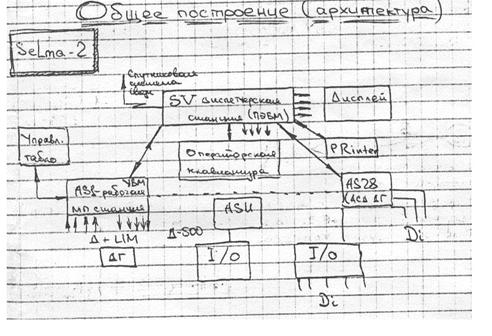 Общее построение (архитектура)
SeLma-2
Спутниковая
система
связи
SV диспетчерская
станция (ПЭВМ)
Дисплей
Управл.
табло
Операторская
клавиатура
PRinter
УВМ
AS1-рабочая
мп станция
AS28
(АСД ДГ
ASU
Δ + LIM
Δ-500
ДГ
I/O
I/O
Di
Di